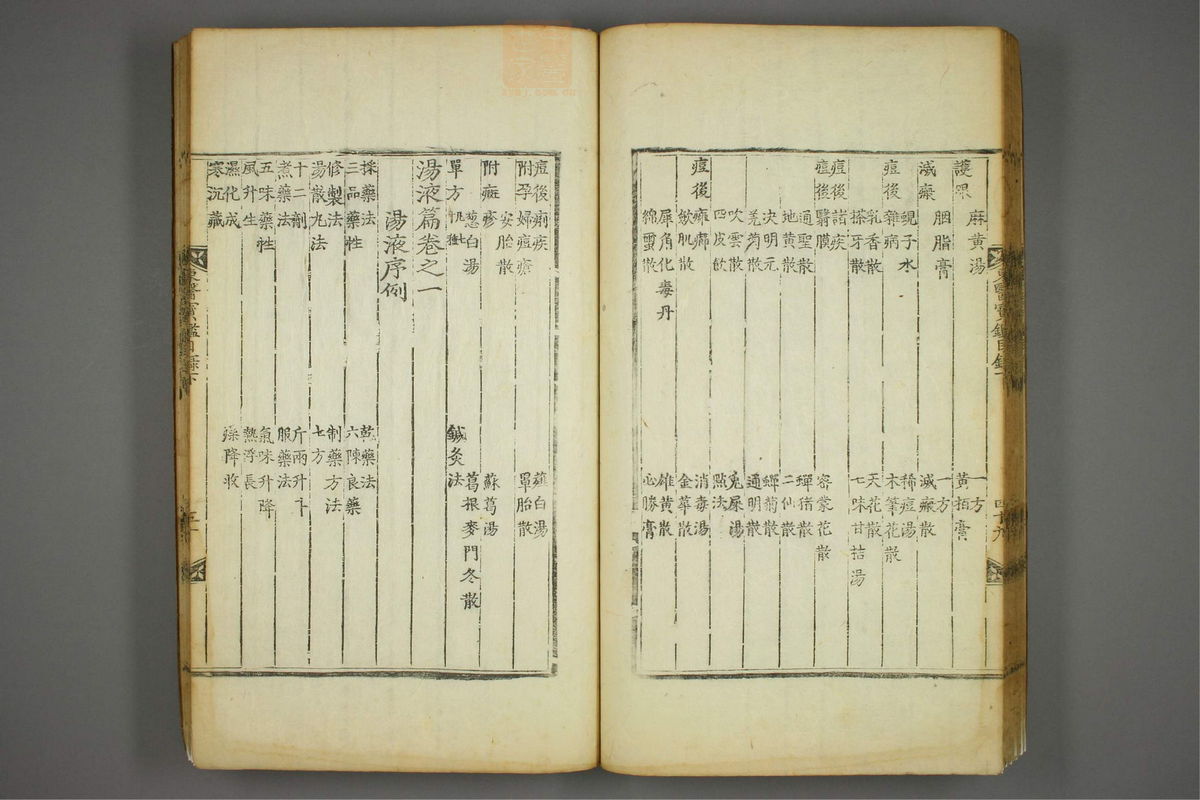 麻黃湯 一方
護眼 黃栢膏
胭脂膏 一方
滅瘢 滅瘢散
蜆子水 稀痘湯
痘後雜病 木筆花散
乳香散 天花散
搽牙散 七味甘桔湯
痘後諸疾
痘後瞖膜 密蒙花散
通聖散 蟬猪散
地黃散 二仙散
決明元 蟬菊散
羌菊散 通明散
吹雲散 兎屎湯
四皮飮 點法
痘後癰癤 消毒湯
斂肌散 金華散
犀角化毒丹 雄黃散
綿蠒散 必勝膏
痘後痢疾 薤白湯
附孕婦痘瘡 罩胎散
安胎散
附癍疹 蘇葛湯
葱白湯 葛根麥門冬散
單方 鍼灸法
湯液篇卷之一
湯液序例
採藥法 乾藥法
三品藥性 六陳良藥
修製法 制藥方法
湯散丸法 七方
十二劑 斤兩升斗
煮藥法 服藥法
五味藥性 氣味升降
風升生 熱浮長
濕化成 燥降收
寒沉藏
東醫寶鑑目錄下